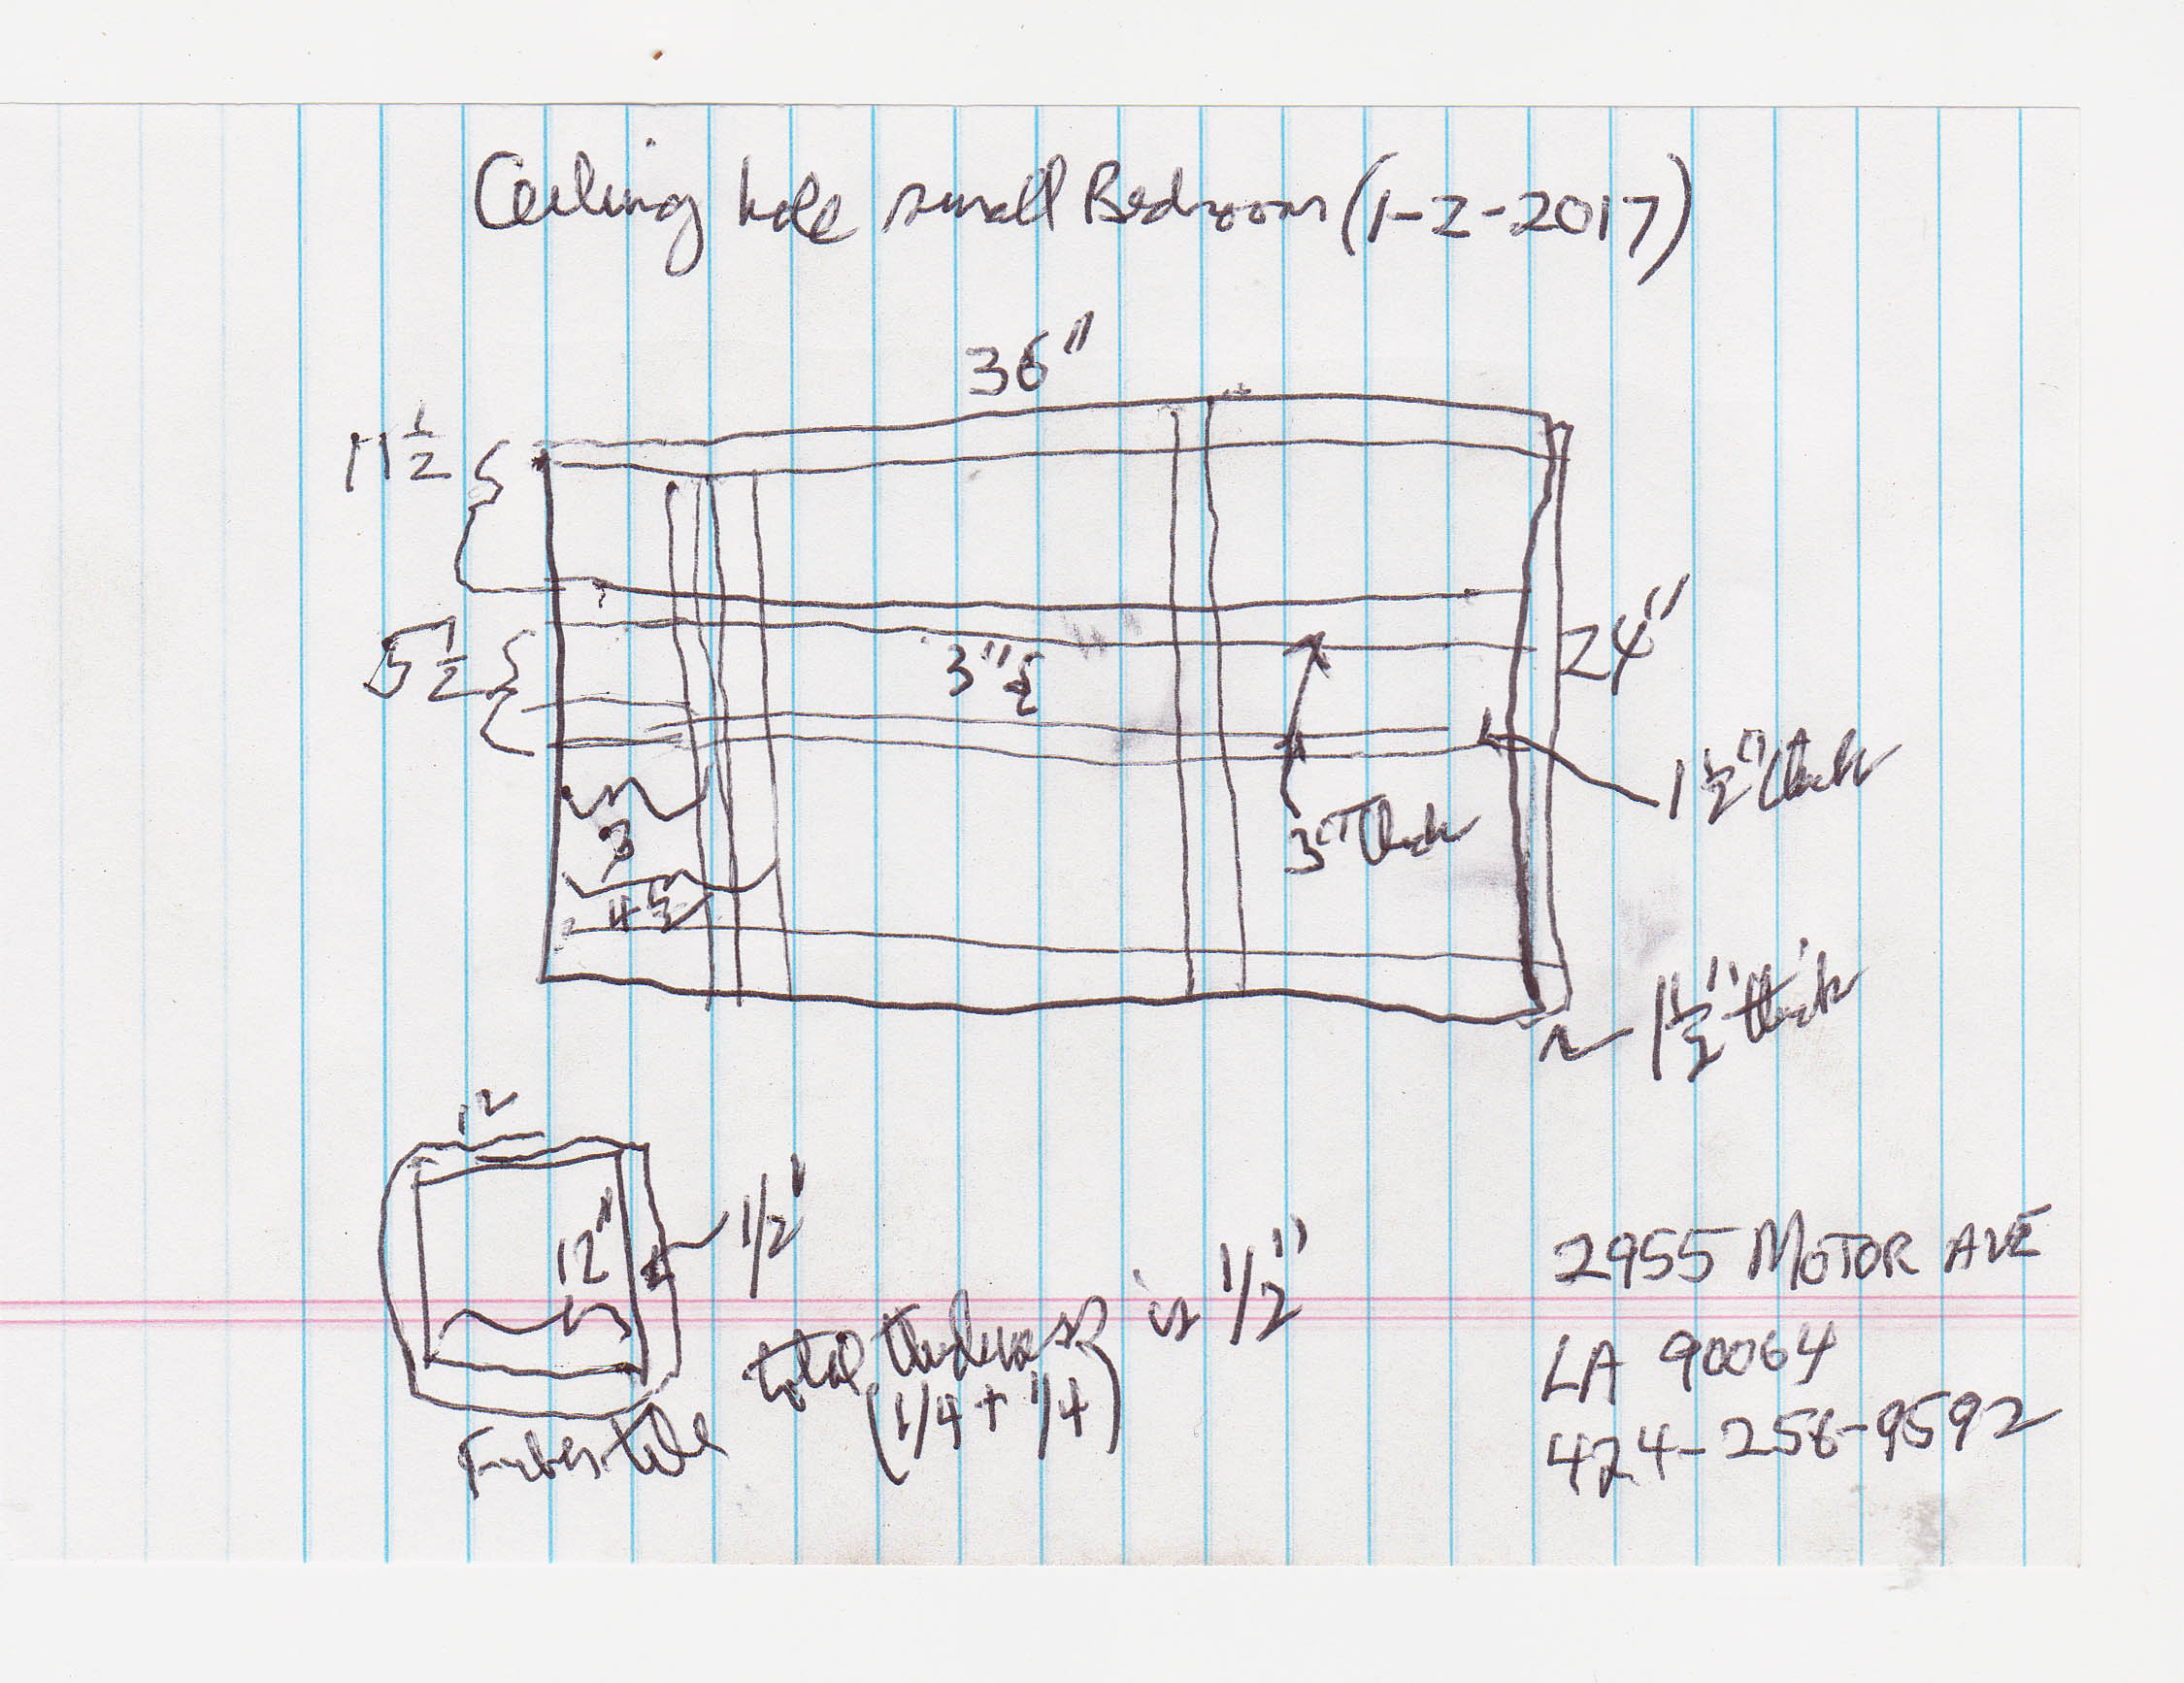 Ceiling hole small Bedroom (1-2-2017)
36"
11 1/2
5 1/2
3"
24"
1 1/2" thick
3" Thick
3
4 1/2
1 1/2" thick
12
12"
1/2"
total thickness is 1/2"
(1/4 + 1/4)
Fiber tile
2955 MOTOR AVE
LA 90064
424-258-9592